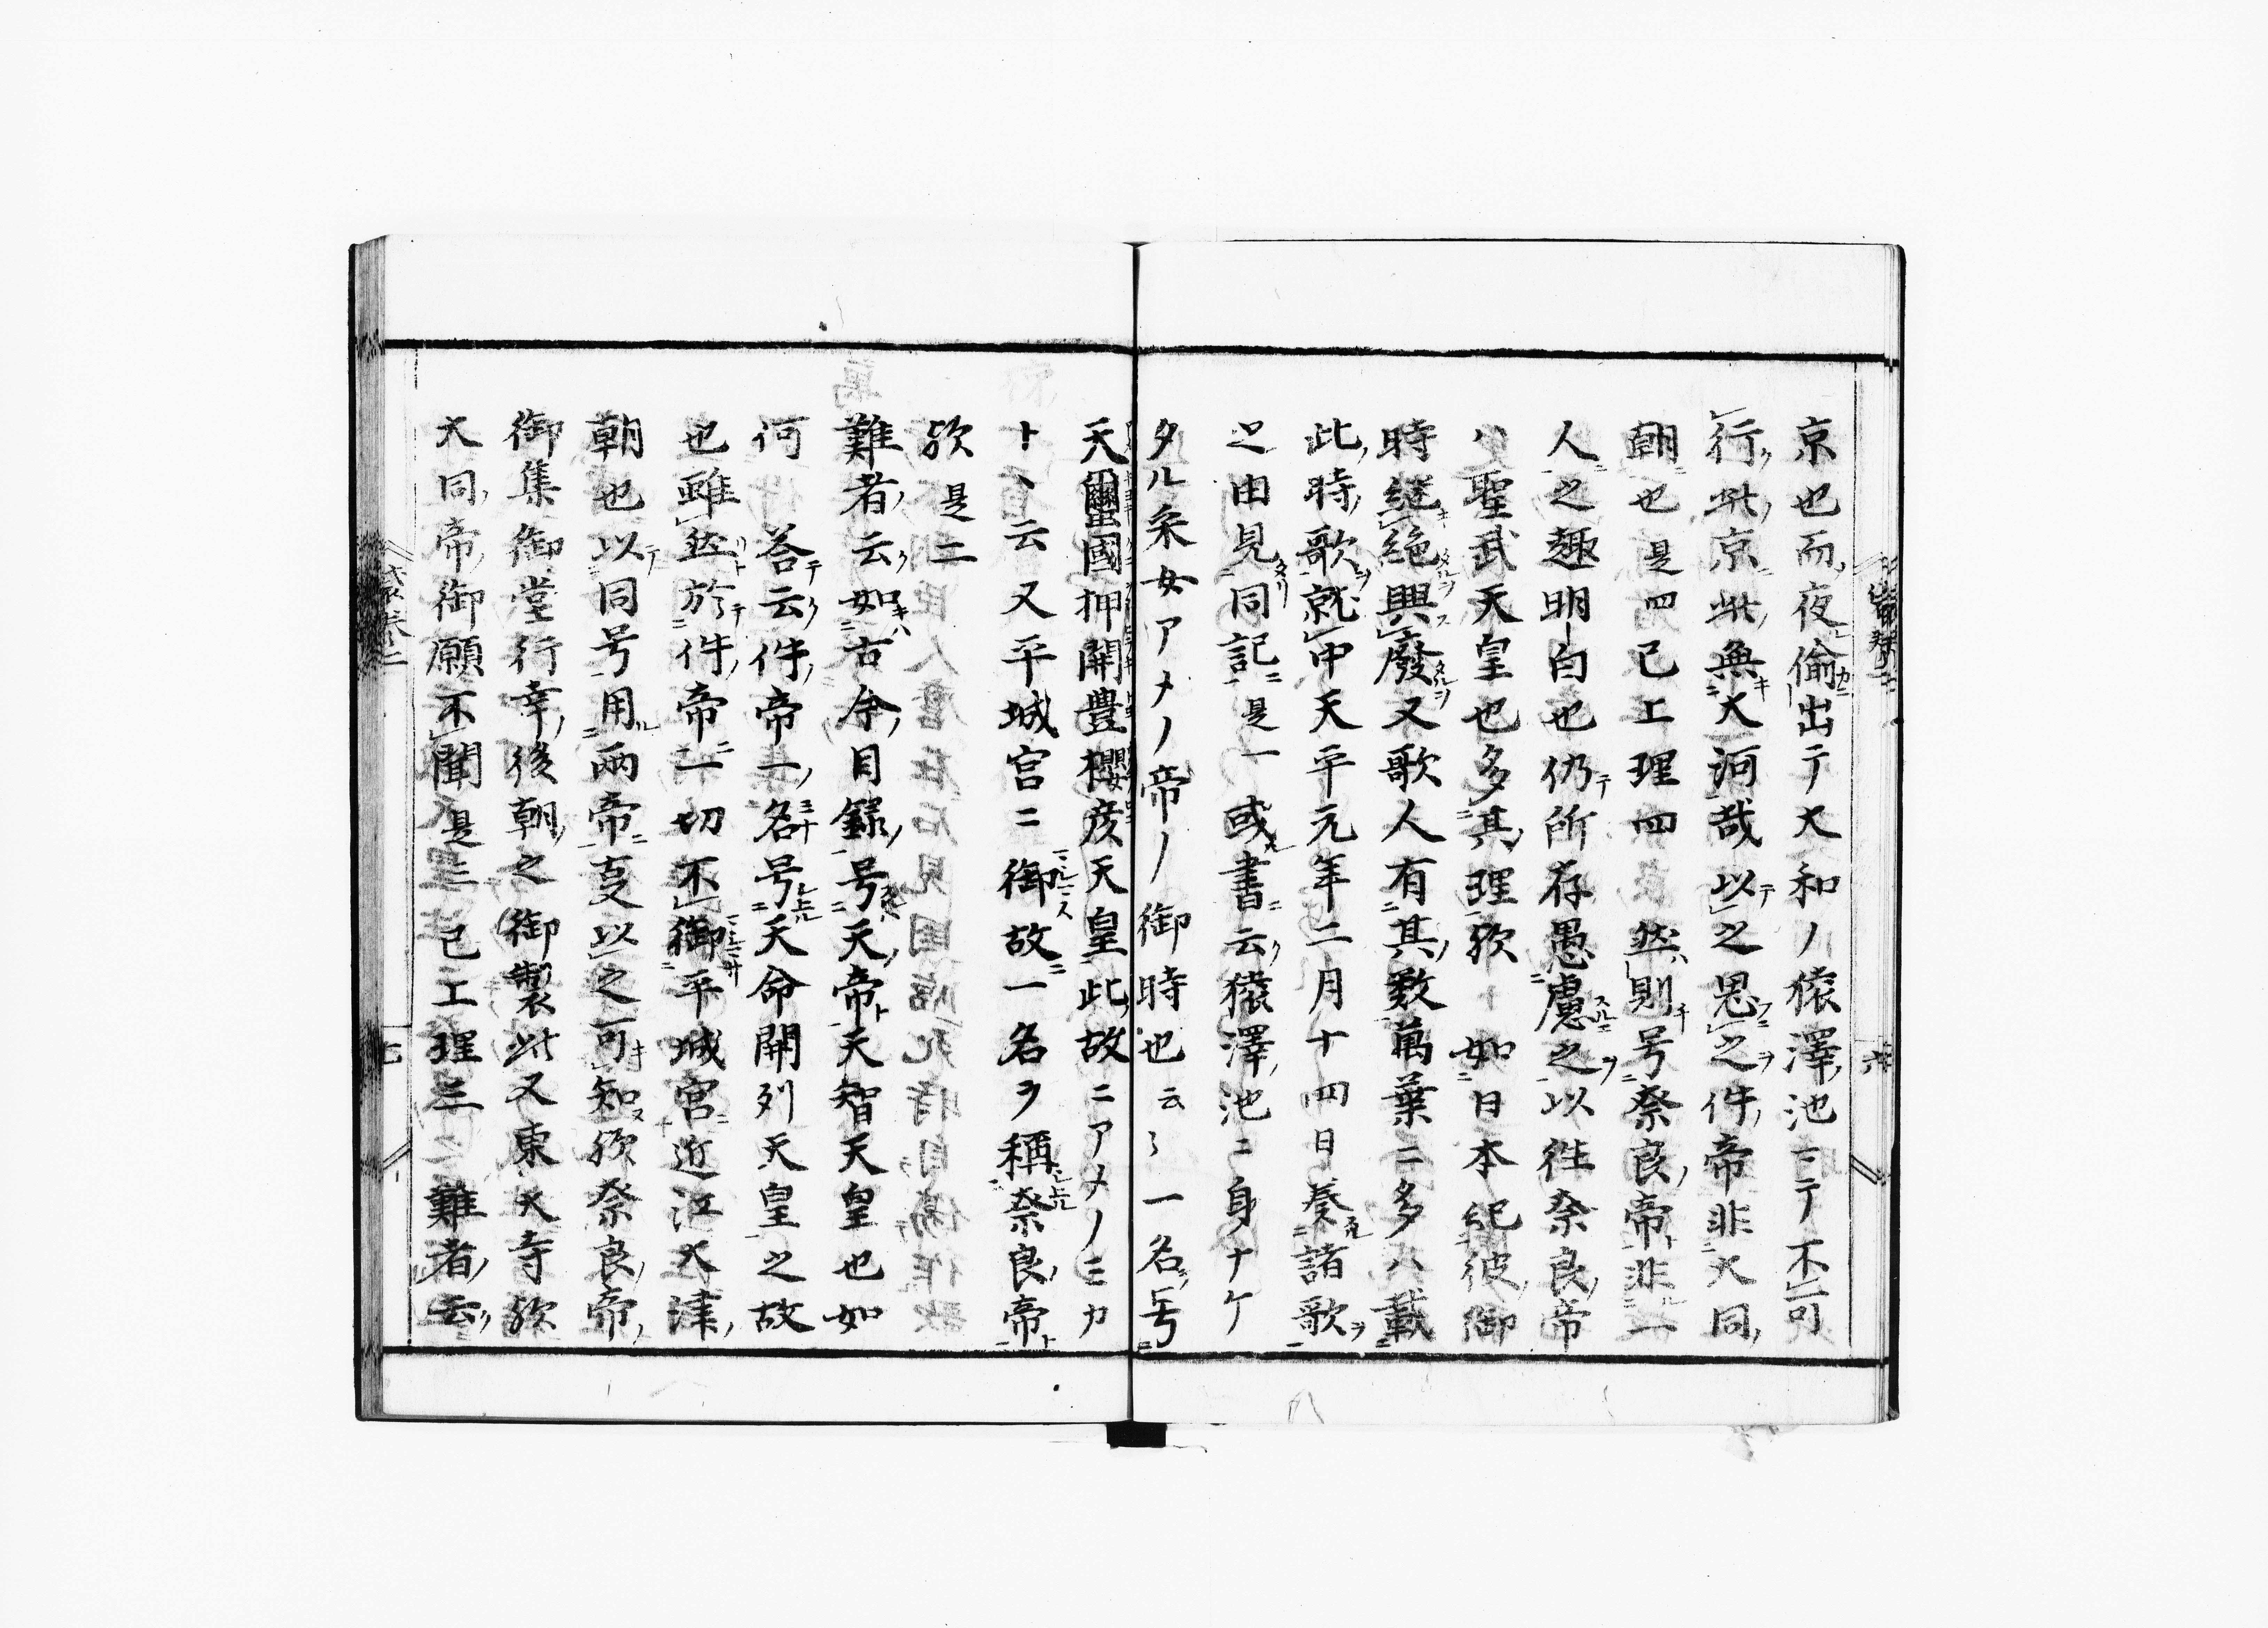 京也而夜偷出テ大和ノ猿澤池ニテ不可
行此京此無大河哉以之思之件帝非大同
朝也是四已上理四 然則号奈良帝非一
人之趣明白也仍所存愚慮之以往奈良帝
ハ聖武天皇也多其理欤 如日本紀彼御
時継絶興廢又歌人有其数萬葉ニ多ハ載
此時歌就中天平元年二月十四日奏諸歌
之由見同記是一 或書云猿澤池ニ身ナケ
タル采女アメノ帝ノ御時也云々一名号
天璽國押開豊櫻彦天皇此故ニアメノミカ
ト、云又平城宮ニ御故一名ヲ稱奈良帝
欤是二
難者云如古今目録号天帝天智天皇也如
何 答云件帝一名号天命開列天皇之故
也雖然於件帝一切不御平城宮近江大津
朝也以同号用兩帝支以之可知欤奈良帝
御集御堂行幸後朝之御製此又東大寺欤
大同帝御願不聞是三已上理三 難者云
六
七